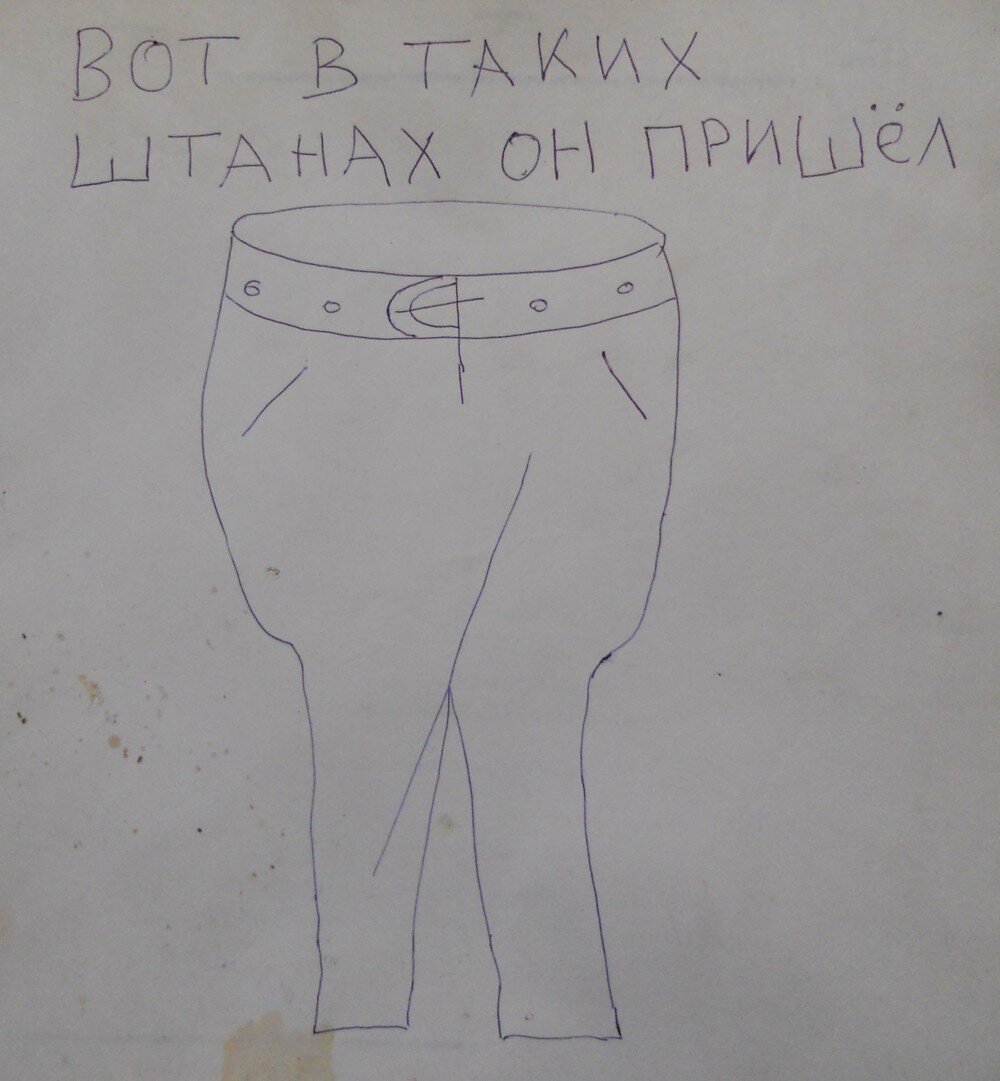 ВОТ В ТАКИХ
ШТАНАХ ОН ПРИШЁЛ